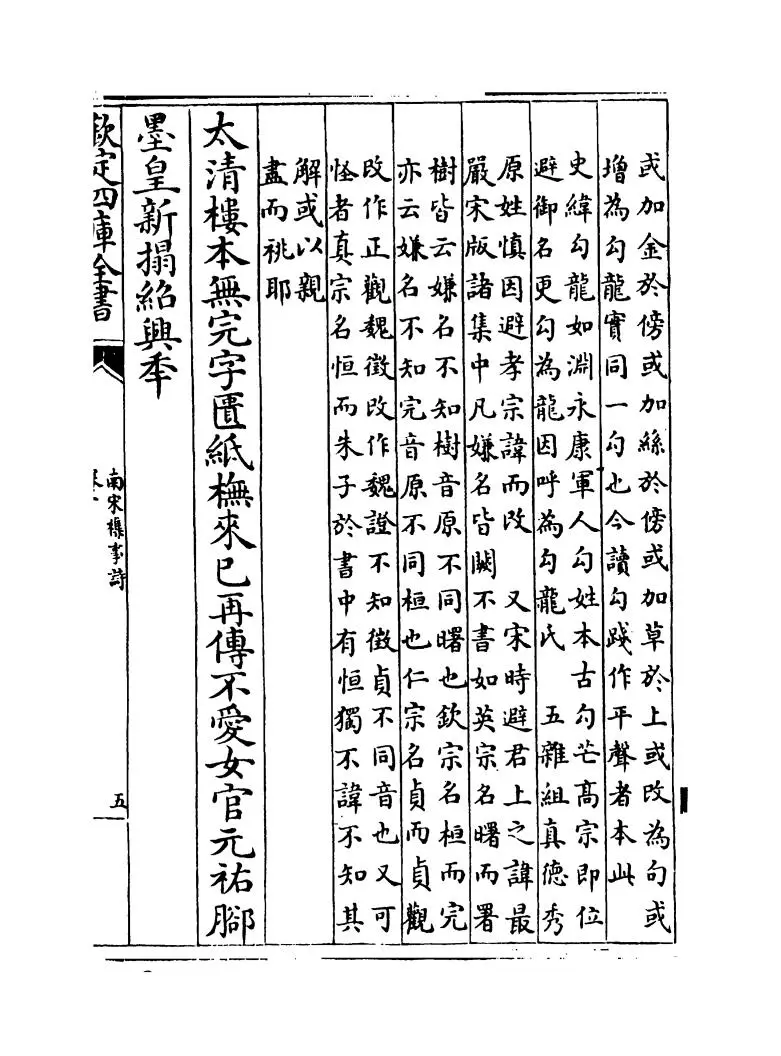 或加金於傍或加絲於傍或加草於上或改為句或
增為勾龍實同一勾也今讀勾踐作平聲者本此
史緯勾龍如淵永康軍人勾姓本古勾芒高宗即位
避御名更勾為龍因呼為勾龍氏　五雜組真德秀
原姓慎因避孝宗諱而改　又宋時避君上之諱最
嚴宋版諸集中凡嫌名皆闕不書如英宗名曙而署
樹皆云嫌名不知樹音原不同曙也欽宗名桓而完
亦云嫌名不知完音原不同桓也仁宗名貞而貞觀
改作正觀魏徵改作魏證不知徵貞不同音也又可
怪者真宗名恒而朱子於書中有恒獨不諱不知其
解或以親
盡而祧耶
太清樓本無完字匱紙橅來已再傳不愛女官元祐腳
墨皇新搨紹興秊
欽定四庫全書
南宋襍事詩
五